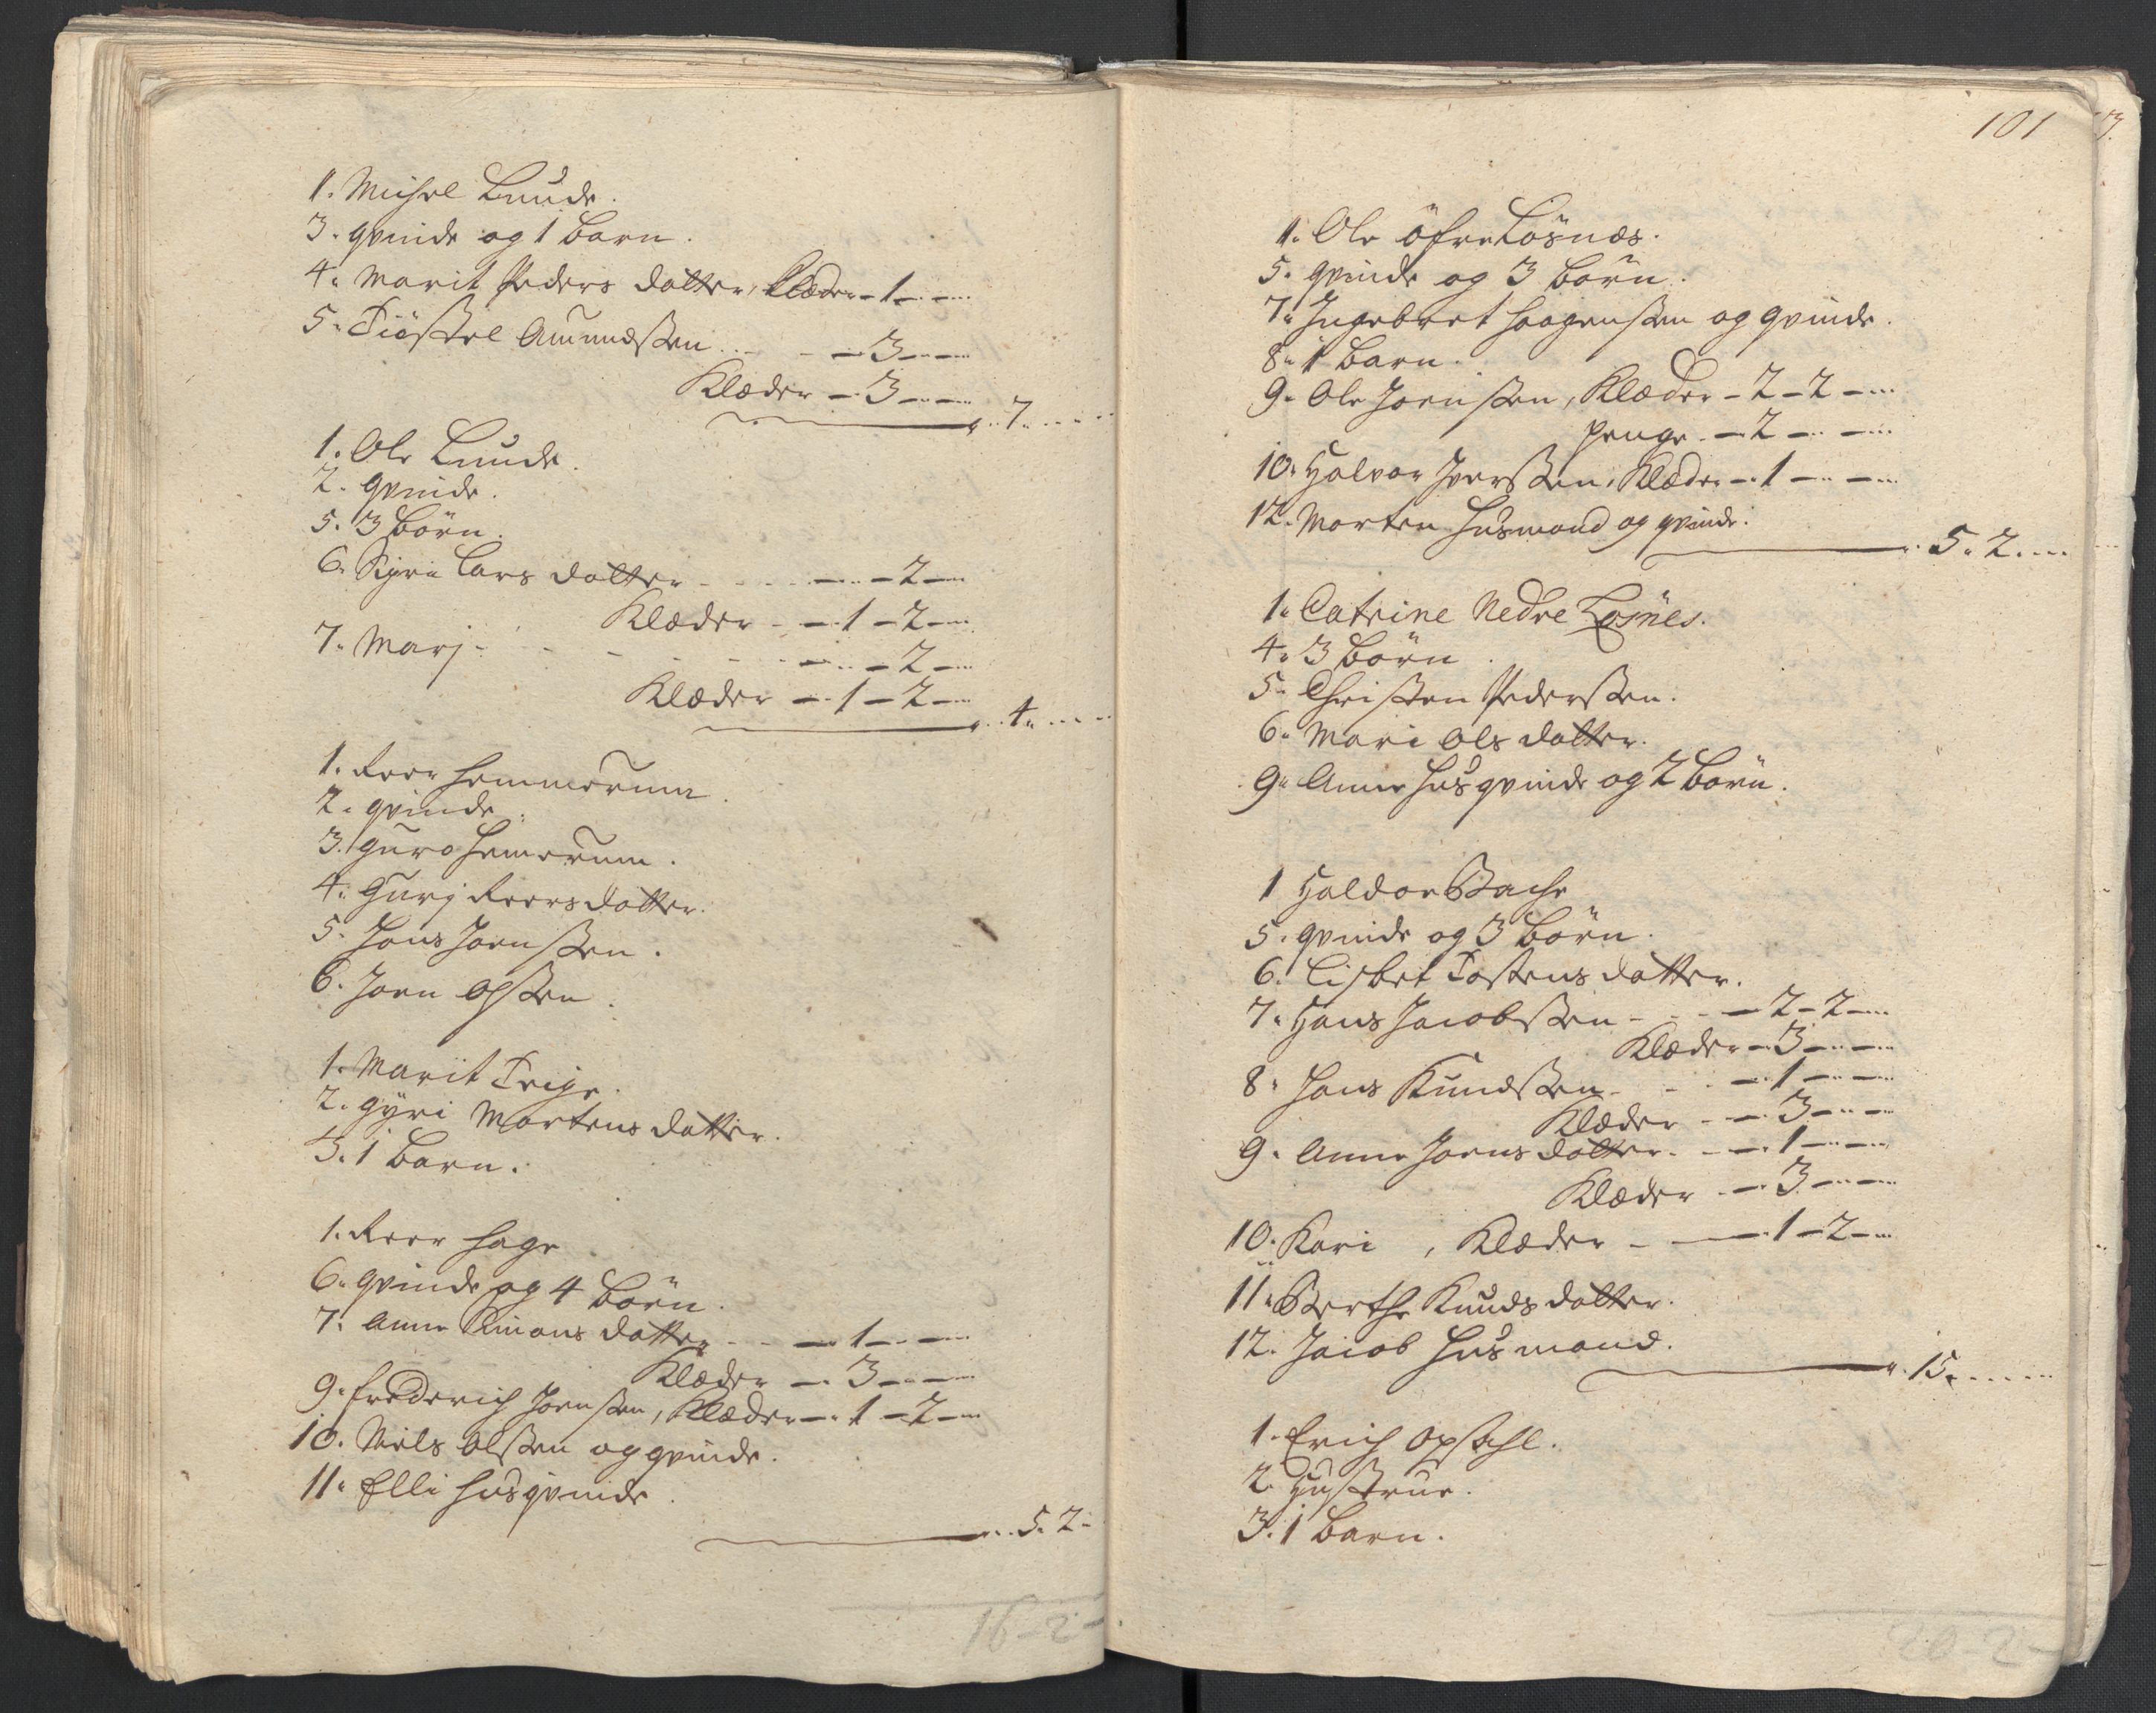 1. Michel Lunde.
3. qvinde og 1 barn.
4. Marit Peders datter, Klæder - 1 - -
5. Tiøstel Amundssen - - 3 - -
Klæder - 3 - -
7 - -
1. Ole Lunde.
2. qvinde.
5. 3 börn.
6. Sigri Lars datter - - - 2 -
Klæder - 1 - 2 -
7. Marj - - - 2 -
Klæder - 1 - 2 -
4 - -
1. Peer Hemmerum.
2. qvinde.
3. Guro Hemerum.
4. Gurj Peers datter.
5. Hans Joenssen.
6. Joen Olssen.
1. Marit Teige.
2. Gÿri Mortens datter.
3. 1 barn.
1. Peer Hage
6. qvinde og 4 börn.
7. Anne Simons datter - - 1 - -
Klæder - 3 - -
9. Frederich Joenssen, Klæder - 1 - 2 -
10. Niels Olssen og qvinde.
11. Elli Husqvinde.
5. 2 -
16 - 2 -
101
1. Ole öfre Lösnæs.
5. qvinde og 3 börn.
7. Ingebret Haagenssen og qvinde.
8. 1 barn.
9. Ole Joenssen, Klæder - 2 - 2 -
penge - 2 - -
10. Halvor Iverssen, Klæder - 1 - -
12. Morten Husmand og qvinde.
5. 2. -
1. Catrine Nedre Losnes.
4. 3 börn.
5. Christen Pederssen.
6. Mari Ols datter.
9. Anne Husqvinde og 2 börn.
1 Haldor Bache
5. qvinde og 3 börn.
6. Lisbet Tostens datter.
7. Hans Jacobssen - - 2 - 2 -
Klæder - 3 - -
8. Hans Knudssen - - 1 - -
Klæder - 3 - -
9. Anne Joens datter - - 1 - -
Klæder - 3 - -
10. Kari, Klæder - - 1 - 2 -
11. Berthe Knuds datter.
12. Jacob Husmand.
15 - -
1. Erich Opsahl.
2. Hustrue.
3. 1 barn.
20 - 2 -